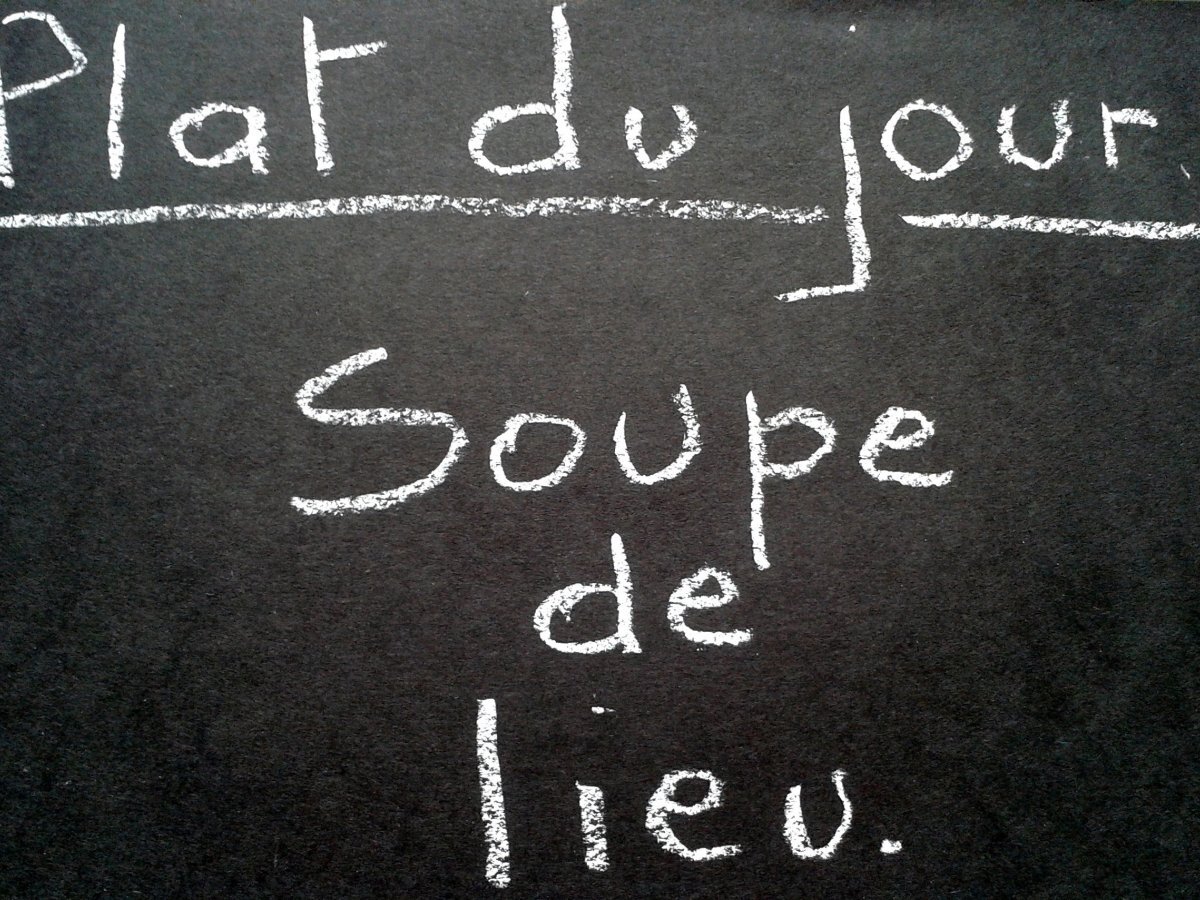 Plat du jour.
Soupe
de
lieu.